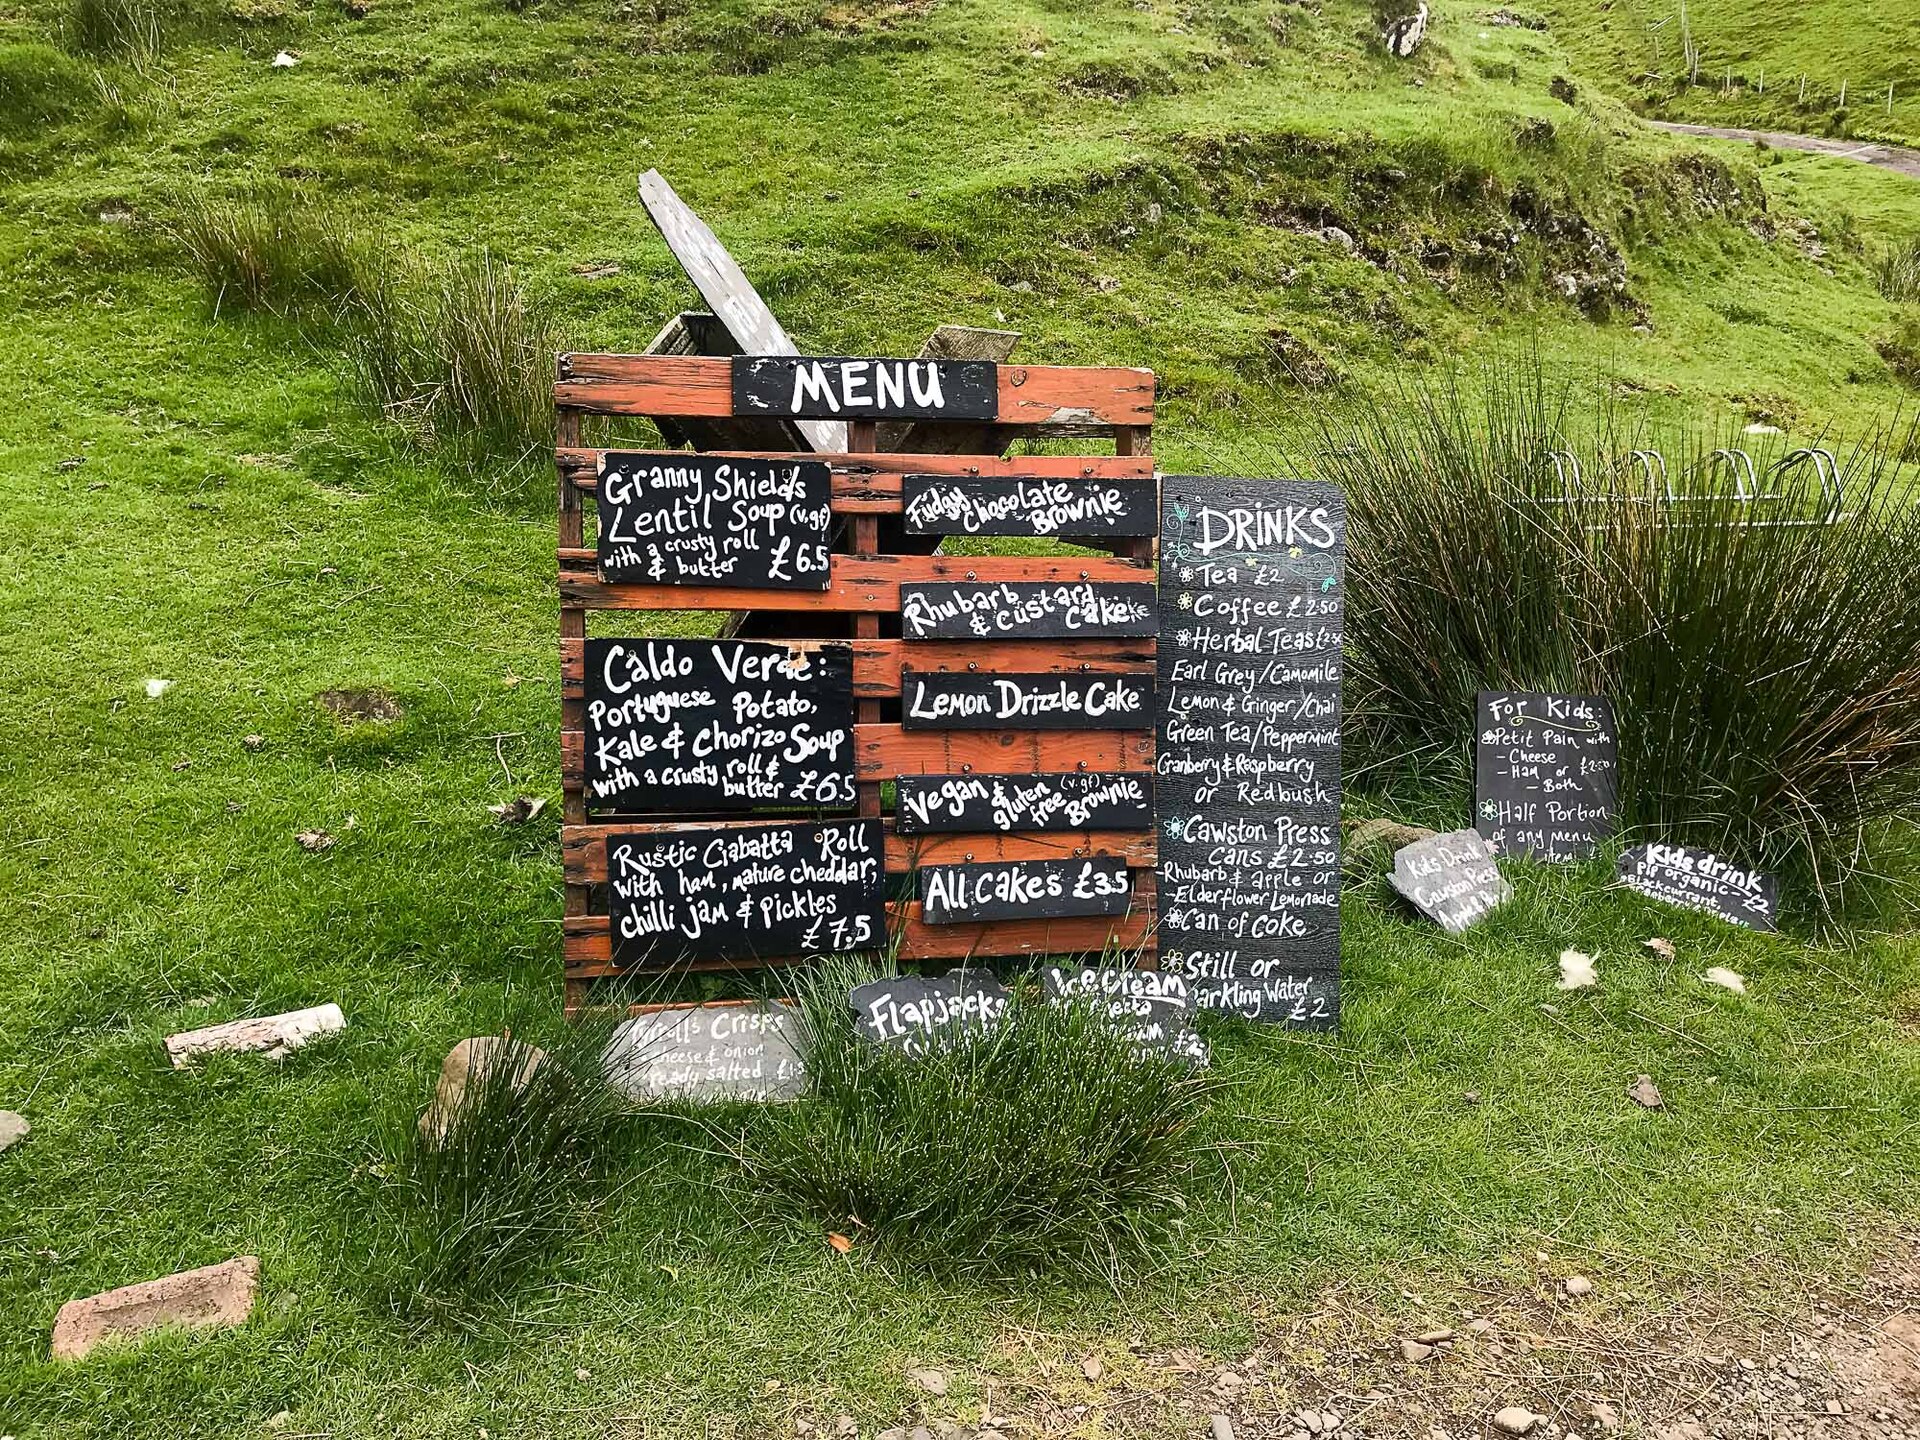 MENU
Granny Shields
Lentil Soup (v,gf)
with a crusty roll
& butter £6.5
Caldo Verde:
Portuguese Potato,
Kale & Chorizo Soup
with a crusty roll &
butter £6.5
Rustic Ciabatta Roll
with ham, mature cheddar,
chilli jam & pickles
£7.5
Fudgy Chocolate
Brownie
Rhubarb
& custard
cake
Lemon Drizzle Cake
Vegan &
gluten
free
(v.gf)
Brownie
All Cakes £3.5
DRINKS
Tea £2
Coffee £2.50
Herbal Teas
Earl Grey/Camomile
Lemon & Ginger/Chai
Green Tea/Peppermint
Cranberry & Raspberry
or Redbush
Cawston Press
Cans £2.50
-Rhubarb & apple or
-Elderflower Lemonade
Can of Coke
Still or
Water
£2
Crisps
cheese & onion
salted
Flapjacks
Ice Cream
For Kids:
Petit Pain with
- Cheese
- Ham or £2.50
- Both
Half Portion
of any menu
item
Kids Drink
Cawston Press
Apple
Kids drink
Pip organic-
£2